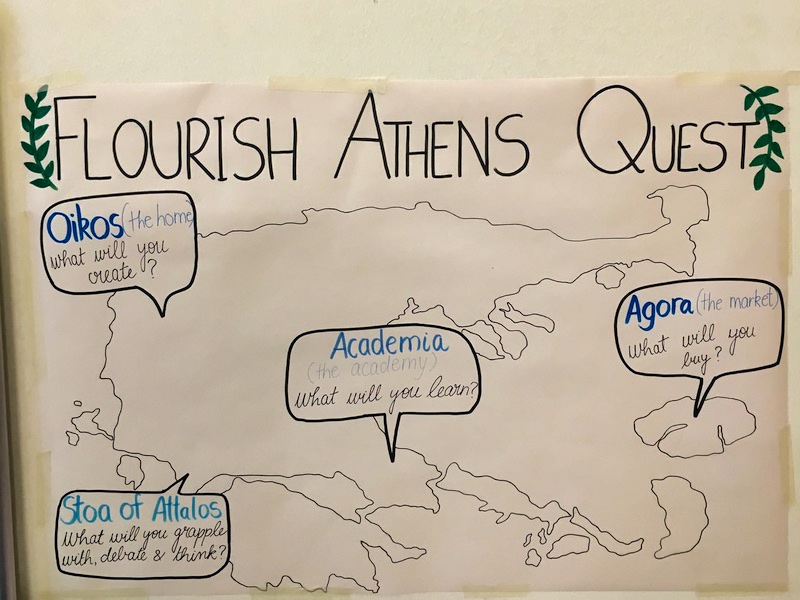 FLOURISH ATHENS QUEST
Oikos (the home)
what will you
create?
Academia
(the academy)
What will you learn?
Agora (the market)
What will you
buy?
Stoa of Attalos
What will you grapple
with, debate & think?